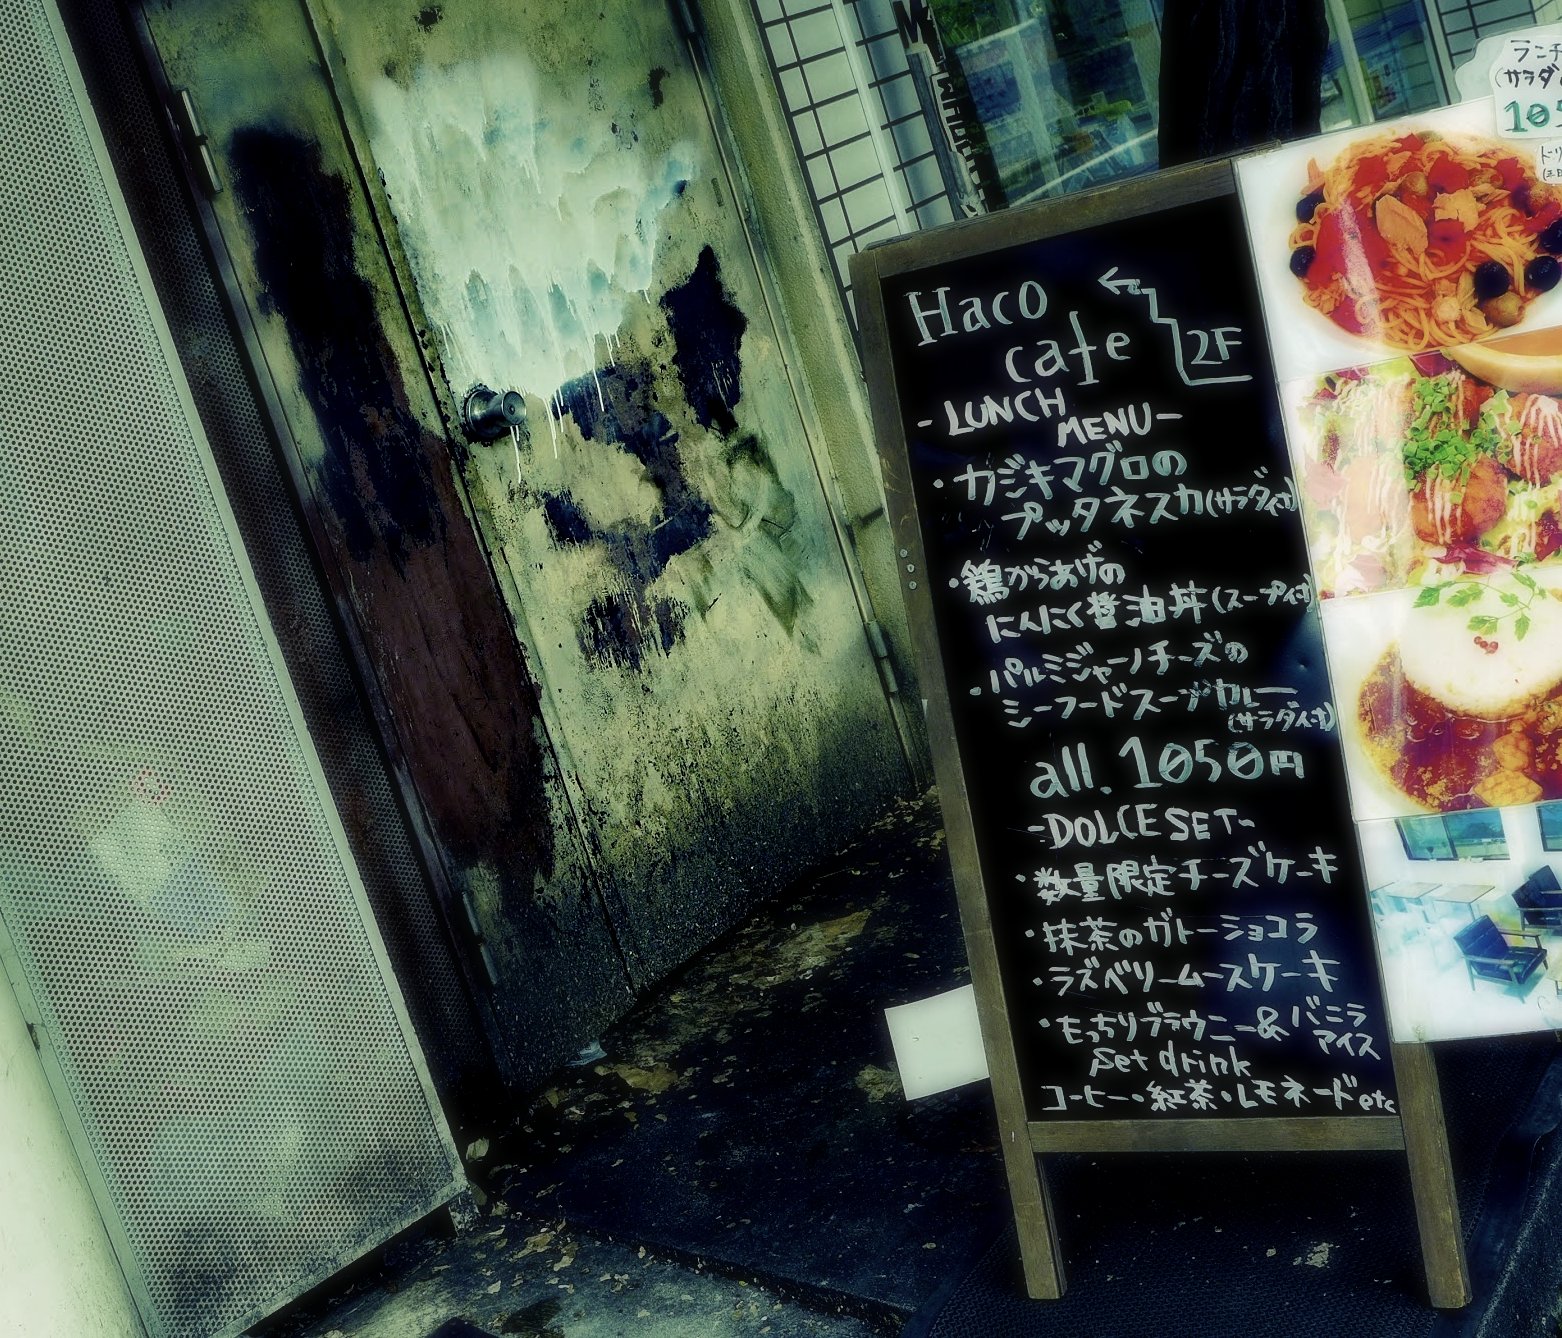 Haco
cafe
2F
- LUNCH
MENU -
・カジキマグロの
プッタネスカ(サラダ付)
・鶏からあげの
にんにく醤油丼(スープ付)
・パルミジャーノチーズの
シーフードスープカレー
(サラダ付)
all. 1050円
-DOLCE SET-
・数量限定チーズケーキ
・抹茶のガトーショコラ
・ラズベリームースケーキ
・もっちりブラウニー&バニラ
アイス
Set drink
コーヒー・紅茶・レモネード etc
ランチ
(サラダ
105